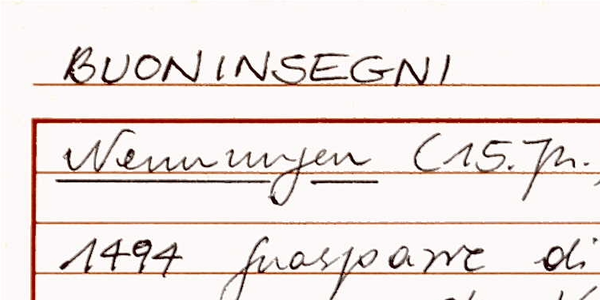 BUONINSEGNI
Nennungen (15. Jh.,
1494 Guasparre di